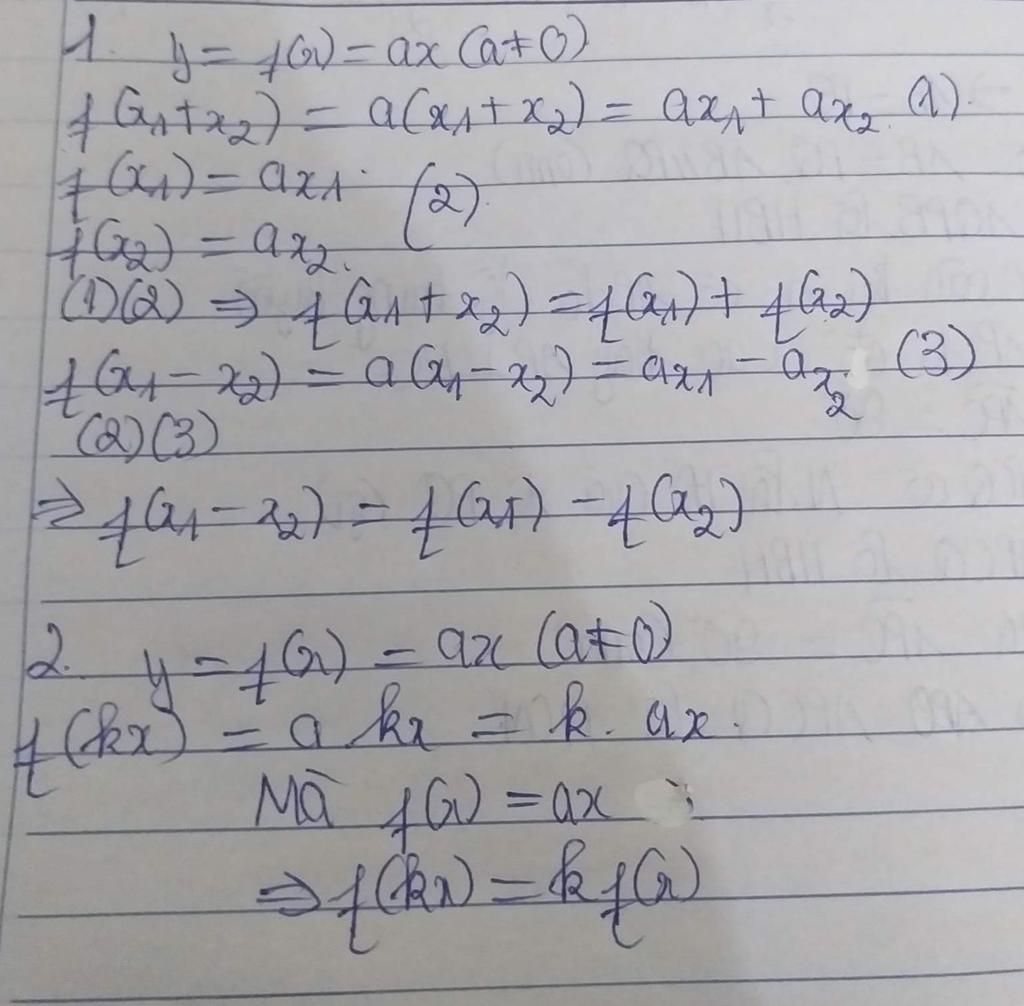 1. y = f(x) = ax (a≠0)
f(x₁+x₂) = a(x₁+x₂) = ax₁ + ax₂ (1).
f(x₁) = ax₁. (2).
f(x₂) = ax₂.
(1)(2) ⇒ f(x₁ + x₂) = f(x₁) + f(x₂)
f(x₁ - x₂) = a(x₁ - x₂) = ax₁ - ax₂ (3)
(2)(3)
⇒ f(x₁ - x₂) = f(x₁) - f(x₂)
2. y = f(x) = ax (a≠0)
f(kx) = a kx = k. ax.
Mà f(x) = ax
⇒ f(kx) = k f(x)